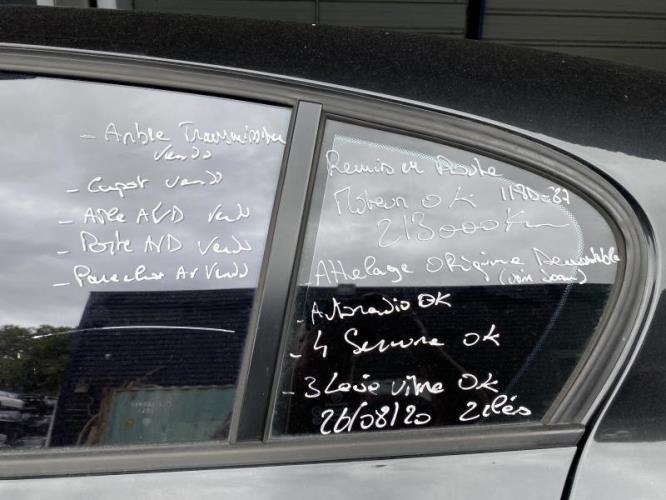 - Arbre Transmission
Vendu
- Capot Vendu
- Aile AVD Vendu
- Porte AVD Vendu
- Parechoc Av Vendu
Remis en Route
Moteur OK 1180-87
213000 Km
- Attelage Origine Demontable
- Autoradio OK
- 4 Serrure OK
- 3 Leve vitre OK
26/08/20 2 clés